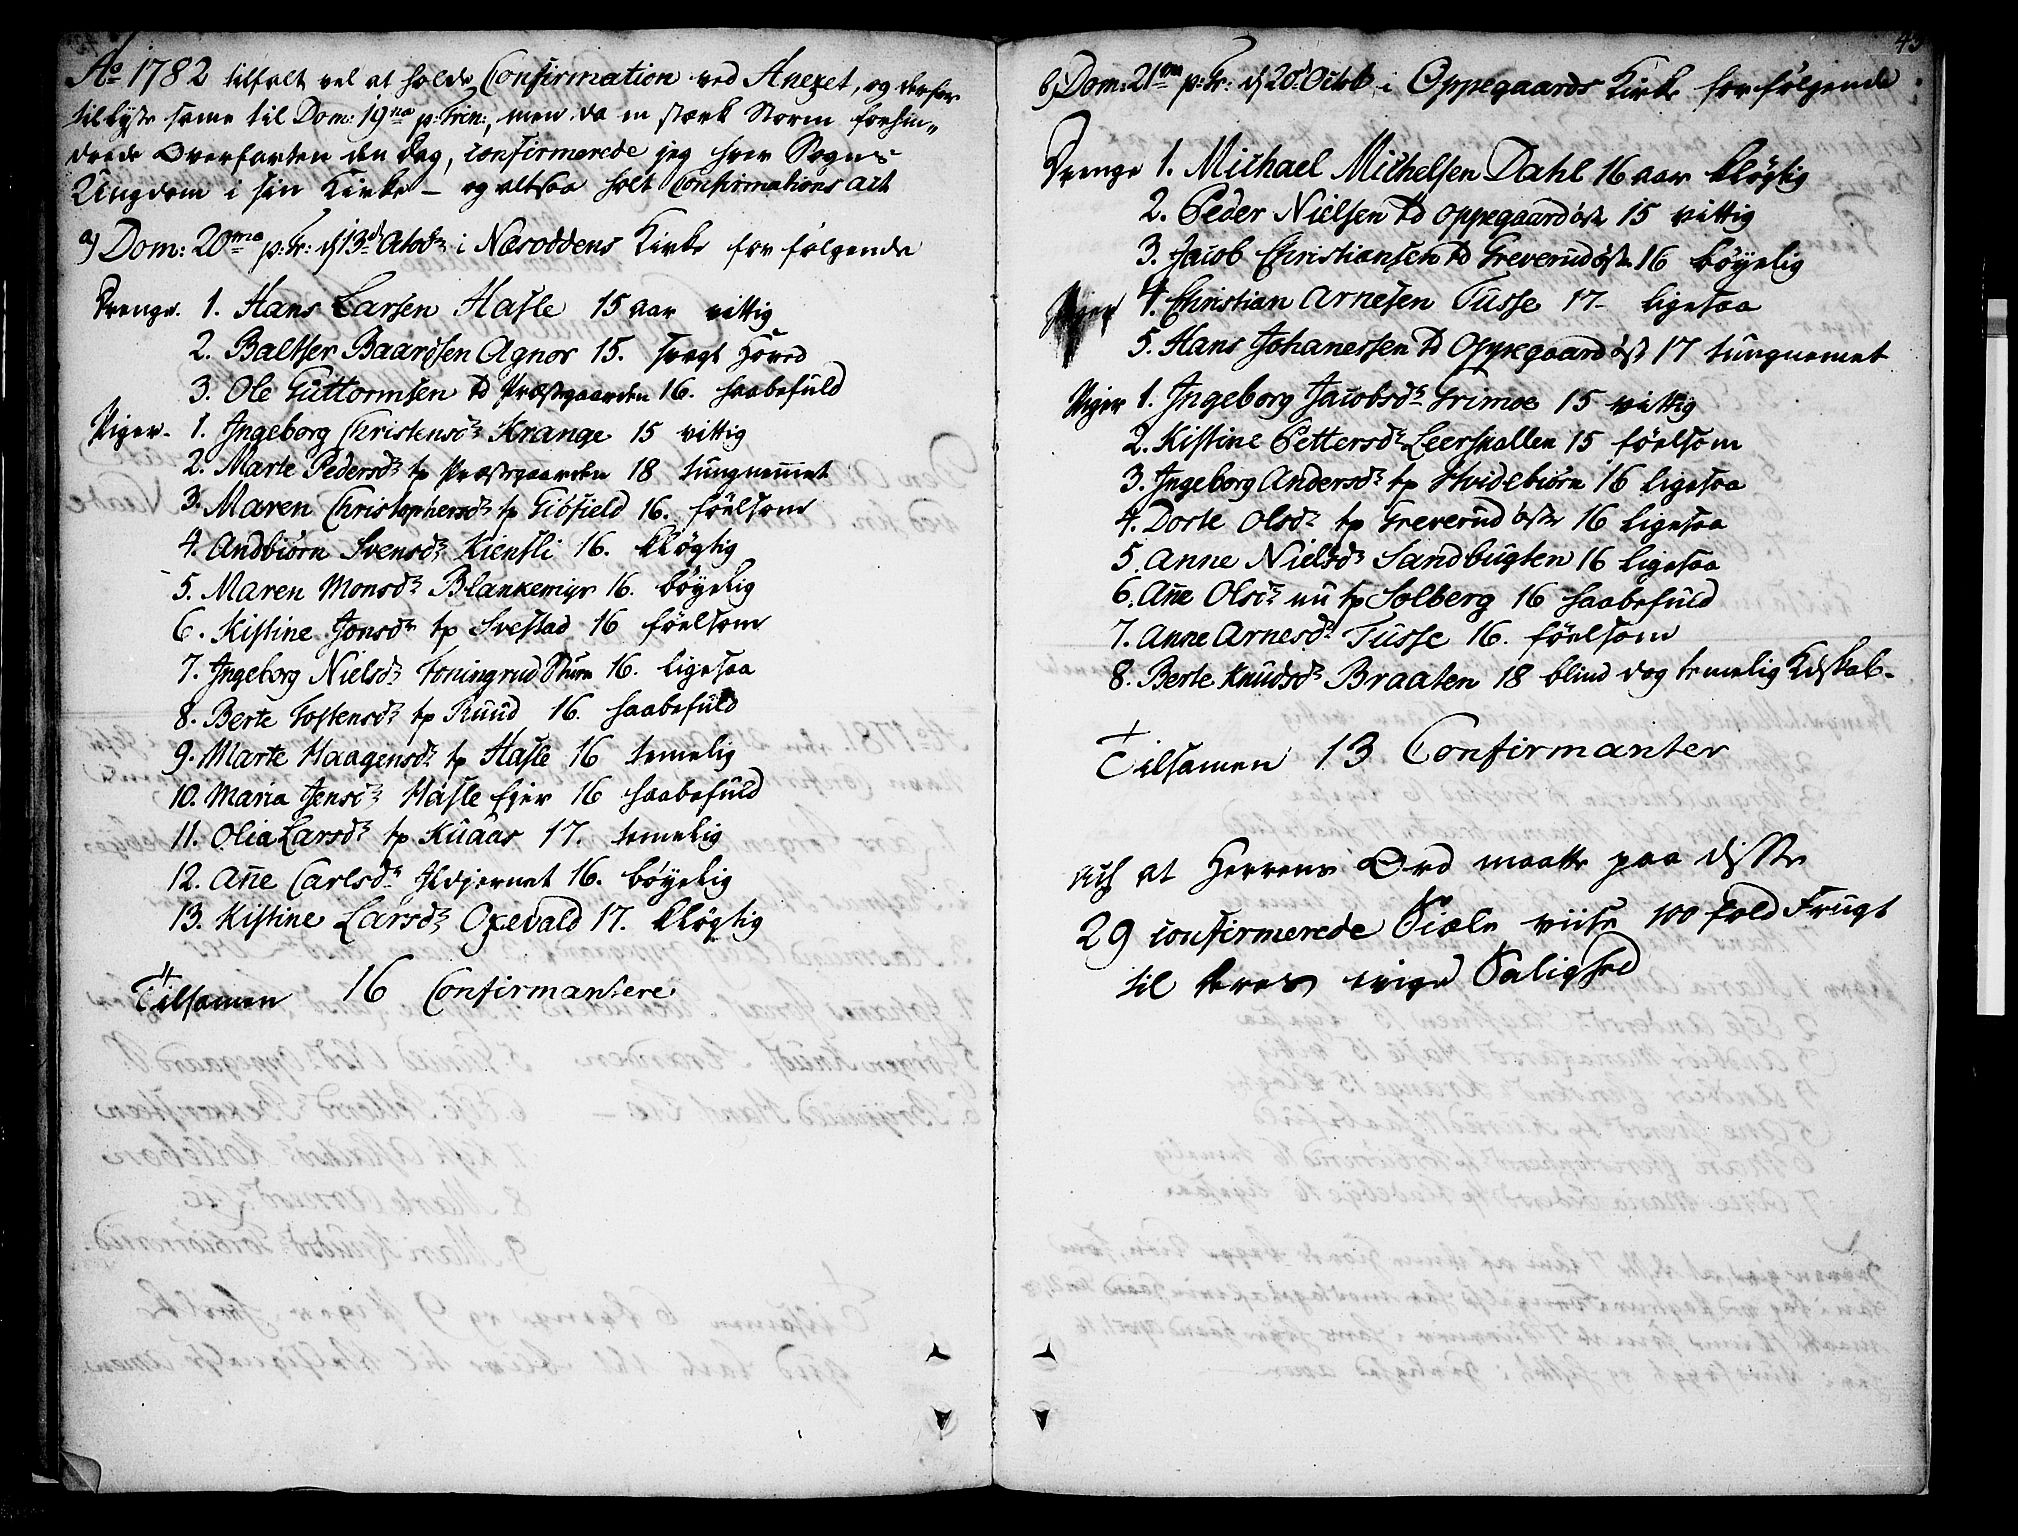 Ao 1782 tilfalt vel at holde Confirmation ved Anexet, og derfor
tillyst same til Dom: 19na p: Trin:, men da en stærk Storm forhin„
drede Overfarten den Dag, confirmerede jeg hver Sogns
Ungdom i sin Kirke – og altsaa holt Confirmations Act
a) Dom: 20ma p: Tr: d 13d Octobr i Næsoddens Kirke for følgende
Drenge. 1. Hans Larsen Hasle 15 aar vittig
2. Baltser Baardsen Agnor 15. svagt Hoved
3. Ole Guttormsen td Præstgaarden 16. haabefuld
Piger. 1. Ingeborg Christensdr Krange 15 vittig
2. Marte Pedersdr tp Præstgaarden 18 tungnemmet
3. Maren Christophersdr tp Gidsield 16. föelsom
4. Andbiörn Svensdr Kiensli 16. kløgtig
5. Maren Monsdr Blankemyr 16. böyelig
6. Kistine Jonsdr tp Svestad 16 föelsom
7. Ingeborg Nielsdr Toningrud Sturn 16. ligesaa
8. Berte Tostensdr tp Ruud 16. haabefuld
9. Marte Haagensdr tp Hasle 16 temelig
10. Maria Jensdr Hasle Ejer 16 haabefuld
11. Olia Larsdr tp Kuaas 17. temelig
12. Añe Carlsdr Ildjernet 16. böyelig
13. Kistine Larsdr Oxevald 17. kløgtig
Tilsamen 16 Confirmantere
43
b) Dom: 21ma p: Tr: d 20d Octob i Oppegaards Kirke for følgende
Drenge 1. Michael Michelsen Dahl 16 aar kløgtig
2. Peder Nielsen td Oppegaard östr 15 vittig
3. Jacob Christiansen td Greverud östr 16 böyelig
4. Christian Arnesen Tusse 17 – ligesaa
5. Hans Johanessen td Oppegaard östr 17 tungnemet
Piger 1. Ingeborg Jacobsdr Grimoe 15 vittig
2. Kistine Pettersdr Leerskallen 15 föelsom
3. Ingeborg Andersdr tp Hvidebiörn 16 ligesaa
4. Dorte Olsdr tp Greverud östr 16 ligesaa
5. Anne Nielsdr Sandbugten 16 ligesaa
6. Añe Olsdr nu tp Solberg 16 haabefuld
7. Anne Arnesdr Tusse 16. föelsom
8. Berte Knudsdr Braaten 18 blind dog temelig Kdskab.
Tilsamen 13 Confirmanter
ach at Herrens Ord maatte paa disse
29 confirmerede Siæle viise 100 fold Frugt
til deres evige Salighed